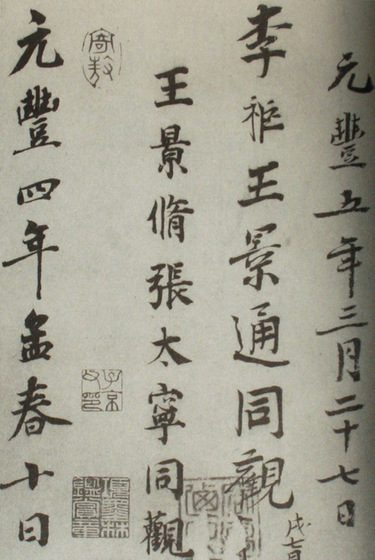 元豐五年三月二十七日
李秬王景通同觀
王景脩張太寧同觀
元豐四年孟春十日